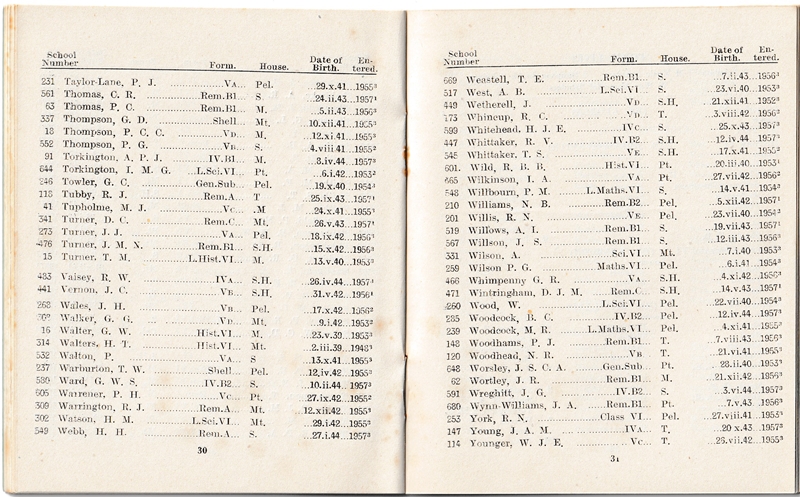 School Number Form. House. Date of Birth. Entered.
231 Taylor-Lane, P. J. VA... Pel. ...29.x.41...1955³
561 Thomas, C. R. Rem.B1... S. ...24.ii.43...1957¹
63 Thomas, P. C. Rem.B1... M. ...5.ii.43...1956³
337 Thompson, G. D. Shell... Mt. ...10.xii.41...1955³
18 Thompson, P. C. C. VD... M. ...12.xi.41...1955³
552 Thompson, P. G. VB... S. ...4.viii.41...1955²
91 Torkington, A. P. J. IV.B1... M. ...8.iv.44...1957³
644 Torkington, I. M. G. L.Sci.VI... Pt. ...6.i.42...1953²
246 Towler, G. C. Gen.Sub... Pel. ...19.x.40...1954³
118 Tubby, R. J. Rem.A... T ...25.ix.43...1957¹
41 Tupholme, M. J. Vc... .M ...24.x.41...1955¹
341 Turner, D. C. Rem.C... Mt. ...26.v.43...1957¹
273 Turner, J. J. VA... Pel. ...18.ix.42...1956¹
476 Turner, J. M. N. Rem.B1... S.H. ...15.x.42...1956³
15 Turner, T. M. L.Hist.VI... M. ...13.v.40...1953³
483 Vaisey, R. W. IVA... S.H. ...26.iv.44...1957³
441 Vernon, J. C. VB... S.H. ...31.v.42...1956¹
268 Wales, J. H. VB... Pel. ...17.x.42...1956²
302 Walker, G. G. VD... Mt. ...9.i.42...1953²
16 Walter, G. W. Hist.VI... M. ...23.v.39...1953¹
314 Walters, H. T. Hist.VI... Mt. ...2.iii.39...1948¹
532 Walton, P. VA... S ...13.x.41...1955¹
237 Warburton, T. W. Shell... Pel. ...12.iv.42...1955³
580 Ward, G. W. S. IV.B2... S. ...10.ii.44...1957³
605 Warrener, P. H. Vc... Pt. ...27.ix.42...1955²
309 Warrington, R. J. Rem.A... Mt. ...12.xii.42...1955¹
302 Watson, H. M. L.Sci.VI... Mt. ...29.i.42...1955¹
549 Webb, H. H. Rem.A... S. ...27.i.44...1957³
30
School Number Form. House. Date of Birth. Entered.
669 Weastell, T. E. Rem.B1... S. ...7.ii.43...1956³
517 West, A. B. L.Sci.VI... S. ...23.vi.40...1953³
449 Wetherell, J. VD... S.H. ...21.xii.41...1952¹
173 Whineup, R. C. VD... T. ...3.viii.42...1956²
599 Whitehead, H. J. E. IVc... S. ...25.x.43...1957³
447 Whittaker, R. V. IV.B2... S.H. ...12.iv.44...1957³
545 Whittaker, T. S. VE... S.H. ...17.x.41...1955²
601. Wild, R. B. B. Hist.VI... Pt. ...20.iii.40...1953¹
665 Wilkinson, I. A. VA... Pt. ...27.vii.42...1956²
548 Willbourn, P. M. L.Maths.VI... S. ...14.v.41...1954³
210 Williams, N. B. Rem.B2... Pel. ...5.xii.42...1957¹
201 Willis, R. N. VE... Pel. ...23.vii.40...1954²
519 Willows, A. I. Rem.B1... S. ...19.vii.43...1957¹
567 Willson, J. S. Rem.B1... S. ...12.iii.43...1956³
331 Wilson, A. Sci.VI... Mt. ...7.i.40...1953¹
259 Wilson P. G. Maths.VI... Pel. ...6.i.41...1954³
466 Whimpenny G. R. VA... S.H. ...4.xi.42...1956³
471 Wintringham, D. J. M. Rem.C... S.H. ...14.v.43...1957¹
260 Wood, W. L.Sci.VI... Pel. ...22.vii.40...1954³
285 Woodcock, B. C. IV.B2... Pel. ...12.iv.44...1957³
239 Woodcock, M. R. L.Maths.VI... Pel. ...4.xi.41...1955²
148 Woodhams, P. J. Rem.B1... T. ...7.viii.43...1956³
120 Woodhead, N. R. VB T. ...21.vi.41...1955³
648 Worsley, J. S. C. A. Gen.Sub... Pt. ...28.ii.40...1953¹
62 Wortley, J. R. Rem.B1... M. ...21.xii.42...1956³
591 Wreghitt, J. G. IV.B2... S. ...3.vi.44...1957³
680 Wynn-Williams, J. A. Rem.B1... Pt. ...7.v.43...1956³
253 York, R. N. Class VI... Pel. ...27.viii.41...1953¹
147 Young, J. A. M. IVA... T. ...20 x.43...1957³
114 Younger, W. J. E. Vc... T. ...26.vii.42...1955³
31